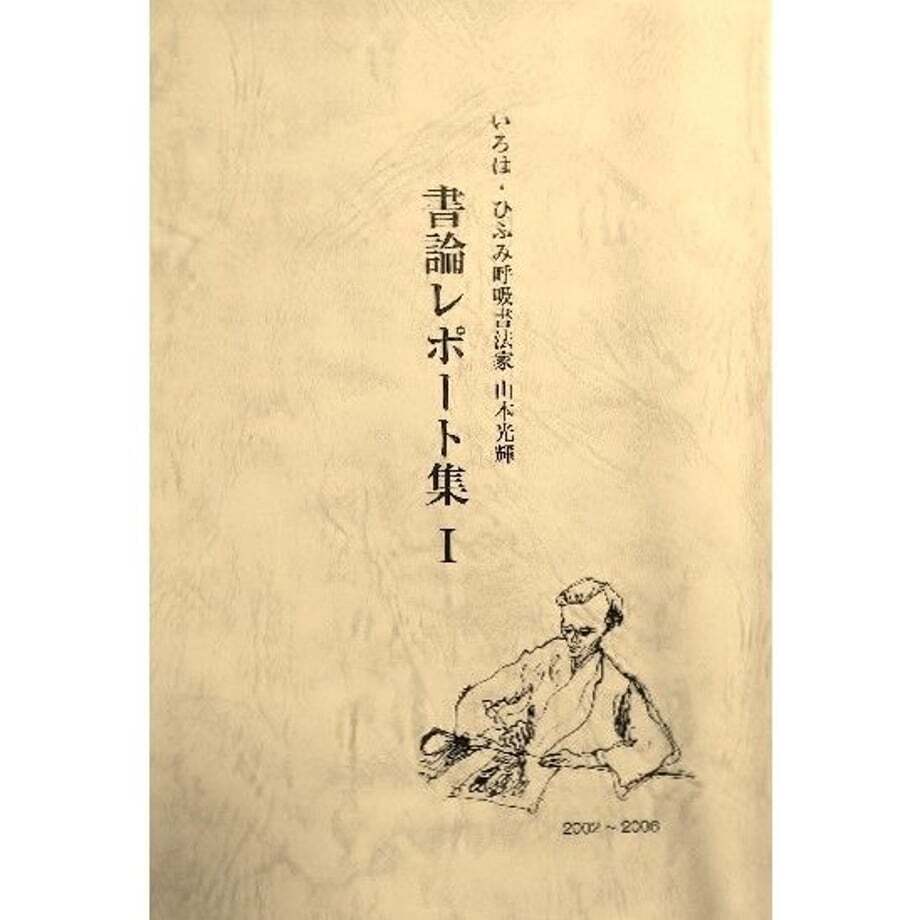 いろは・ひふみ呼吸書法家 山本光輝
書論レポート集 I
2002~2006